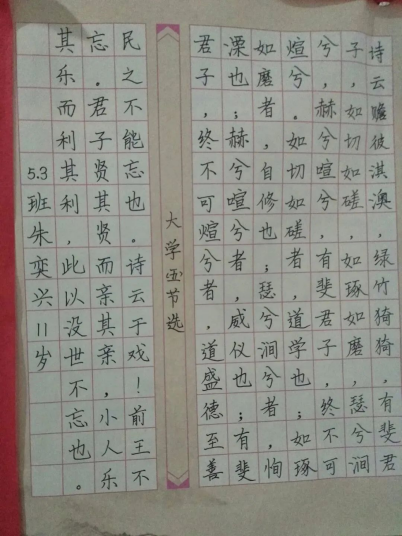 诗云瞻彼淇澳，绿竹猗猗，有斐君
子，如切如磋，如琢如磨，瑟兮涧
兮，赫兮喧兮，有斐君子，终不可
煊兮。如切如磋，者道学也，如琢
如磨者，自修也；瑟兮涧兮者，恂
溧也；赫兮喧兮者，威仪也；有斐
君子，终不可煊兮者，道盛德至善
大学(五)节选
民之不能忘也。诗云于戏！前王不
忘。君子贤其贤而亲其亲，小人乐
其乐而利其利，此以没世不忘也。
5.3班朱奕兴11岁